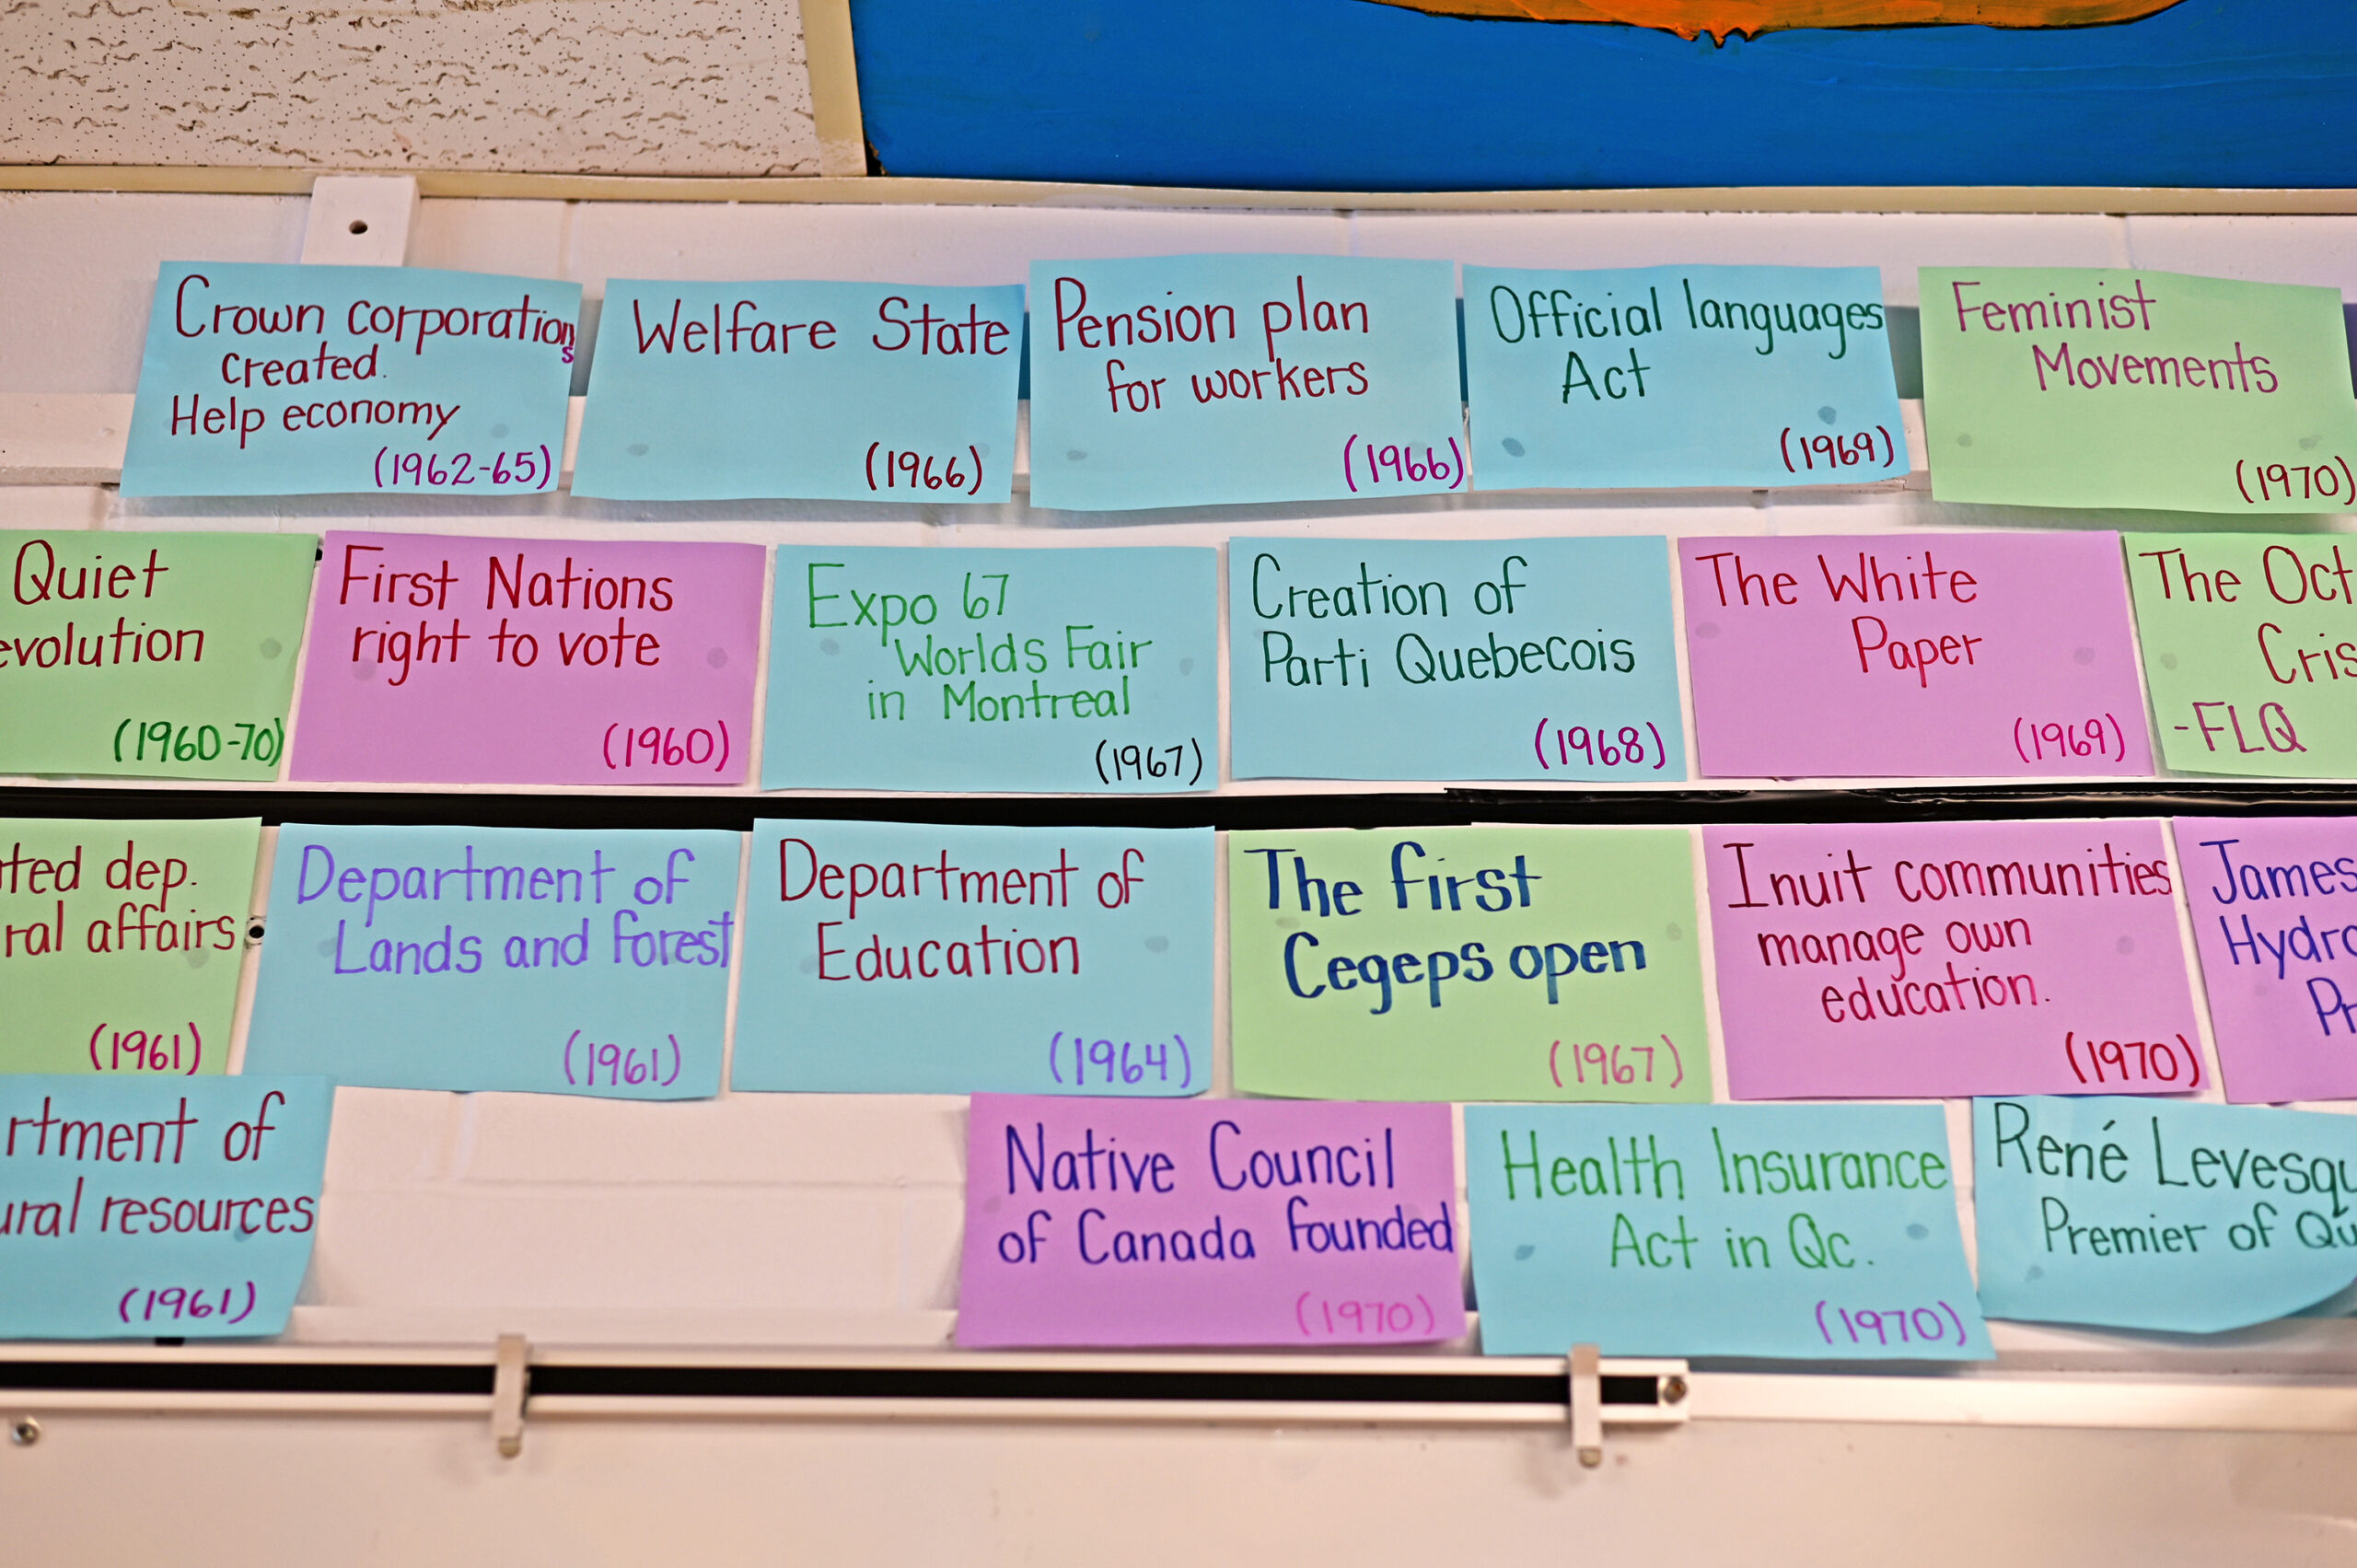 Crown corporations
created.
Help economy
(1962-65)
Welfare State
(1966)
Pension plan
for workers
(1966)
Official languages
Act
(1969)
Feminist
Movements
(1970)
Quiet
evolution
(1960-70)
First Nations
right to vote
(1960)
Expo 67
Worlds Fair
in Montreal
(1967)
Creation of
Parti Quebecois
(1968)
The White
Paper
(1969)
The Oct
Cris
-FLQ
ted dep.
ral affairs
(1961)
Department of
Lands and forest
(1961)
Department of
Education
(1964)
The first
Cegeps open
(1967)
Inuit communities
manage own
education.
(1970)
James
Hydro
Pr
rtment of
ural resources
(1961)
Native Council
of Canada founded
(1970)
Health Insurance
Act in Qc.
(1970)
René Levesqu
Premier of Qu